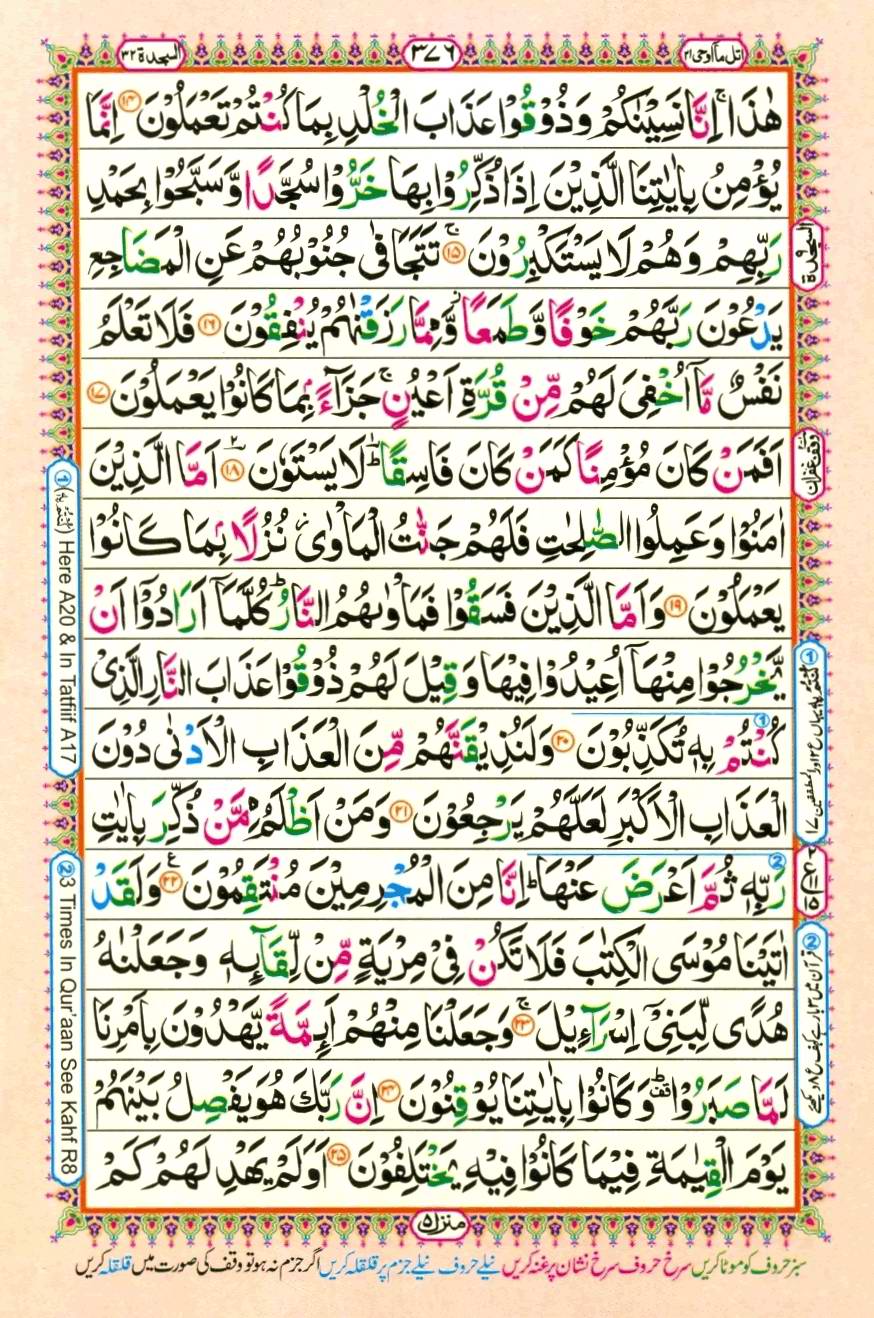 اتل مآ اوحی ۲۱
۳۷۶
السجدة ۳۲
هٰذَا ۚ اِنَّا نَسِيْنٰكُمْ وَذُوْقُوْا عَذَابَ الْخُلْدِ بِمَا كُنْتُمْ تَعْمَلُوْنَ ﴿۱۴﴾ اِنَّمَا
يُؤْمِنُ بِاٰيٰتِنَا الَّذِيْنَ اِذَا ذُكِّرُوْا بِهَا خَرُّوْا سُجَّدًا وَّسَبَّحُوْا بِحَمْدِ
رَبِّهِمْ وَهُمْ لَا يَسْتَكْبِرُوْنَ ۩ ﴿۱۵﴾ تَتَجَافٰى جُنُوْبُهُمْ عَنِ الْمَضَاجِعِ
يَدْعُوْنَ رَبَّهُمْ خَوْفًا وَّطَمَعًا ۫ وَّمِمَّا رَزَقْنٰهُمْ يُنْفِقُوْنَ ﴿۱۶﴾ فَلَا تَعْلَمُ
نَفْسٌ مَّآ اُخْفِيَ لَهُمْ مِّنْ قُرَّةِ اَعْيُنٍ ۚ جَزَآءًۢ بِمَا كَانُوْا يَعْمَلُوْنَ ﴿۱۷﴾
اَفَمَنْ كَانَ مُؤْمِنًا كَمَنْ كَانَ فَاسِقًا ؕ لَا يَسْتَوٗنَ ﴿۱۸﴾ اَمَّا الَّذِيْنَ
اٰمَنُوْا وَعَمِلُوا الصّٰلِحٰتِ فَلَهُمْ جَنّٰتُ الْمَاْوٰى ۫ نُزُلًۢا بِمَا كَانُوْا
يَعْمَلُوْنَ ﴿۱۹﴾ وَاَمَّا الَّذِيْنَ فَسَقُوْا فَمَاْوٰىهُمُ النَّارُ ؕ كُلَّمَآ اَرَادُوْٓا اَنْ
يَّخْرُجُوْا مِنْهَآ اُعِيْدُوْا فِيْهَا وَقِيْلَ لَهُمْ ذُوْقُوْا عَذَابَ النَّارِ الَّذِيْ
كُنْتُمْ بِهٖ تُكَذِّبُوْنَ ﴿۲۰﴾ وَلَنُذِيْقَنَّهُمْ مِّنَ الْعَذَابِ الْاَدْنٰى دُوْنَ
الْعَذَابِ الْاَكْبَرِ لَعَلَّهُمْ يَرْجِعُوْنَ ﴿۲۱﴾ وَمَنْ اَظْلَمُ مِمَّنْ ذُكِّرَ بِاٰيٰتِ
رَبِّهٖ ثُمَّ اَعْرَضَ عَنْهَا ؕ اِنَّا مِنَ الْمُجْرِمِيْنَ مُنْتَقِمُوْنَ ﴿۲۲﴾ وَلَقَدْ
اٰتَيْنَا مُوْسَى الْكِتٰبَ فَلَا تَكُنْ فِيْ مِرْيَةٍ مِّنْ لِّقَآئِهٖ وَجَعَلْنٰهُ
هُدًى لِّبَنِيْٓ اِسْرَآءِيْلَ ۚ ﴿۲۳﴾ وَجَعَلْنَا مِنْهُمْ اَئِمَّةً يَّهْدُوْنَ بِاَمْرِنَا
لَمَّا صَبَرُوْا ؕ وَكَانُوْا بِاٰيٰتِنَا يُوْقِنُوْنَ ﴿۲۴﴾ اِنَّ رَبَّكَ هُوَ يَفْصِلُ بَيْنَهُمْ
يَوْمَ الْقِيٰمَةِ فِيْمَا كَانُوْا فِيْهِ يَخْتَلِفُوْنَ ﴿۲۵﴾ اَوَلَمْ يَهْدِ لَهُمْ كَمْ
السجدة
وقف غفران
① Here A20 & In Tatfiif A17
② 3 Times In Qur'aan See Kahf R8
منزل ۵
سبز حروف کو موٹا کریں سرخ حروف سرخ نشان پر غنہ کریں نیلے حروف نیلے جزم پر قلقلہ کریں اگر جزم نہ ہو تو وقف کی صورت میں قلقلہ کریں